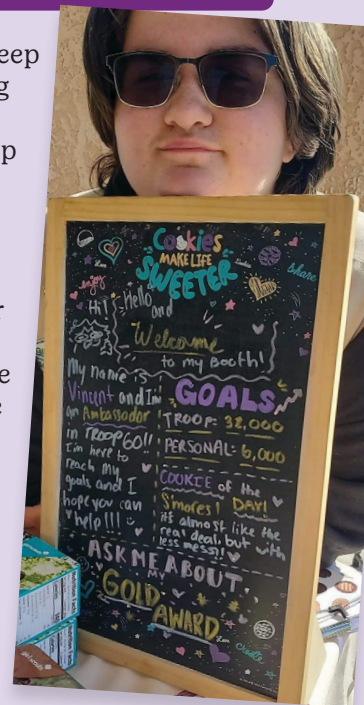 eep
g
p
r
e
e
Cookies
MAKE LIFE
SWEETER
enjoy
share
Hi! Hello
and
Welcome
to my Booth!
My name is
Vincent and I'm
an Ambassador
in TROOP 60!!
I'm here to
reach my
goals and I
hope you can
help!!!
GOALS
TROOP: 32,000
PERSONAL: 6,000
COOKIE of the
DAY!
S'mores!
it's almost like the
real deal, but with
less mess!
ASK ME ABOUT
MY
GOLD
AWARD
create
Nutrition Facts